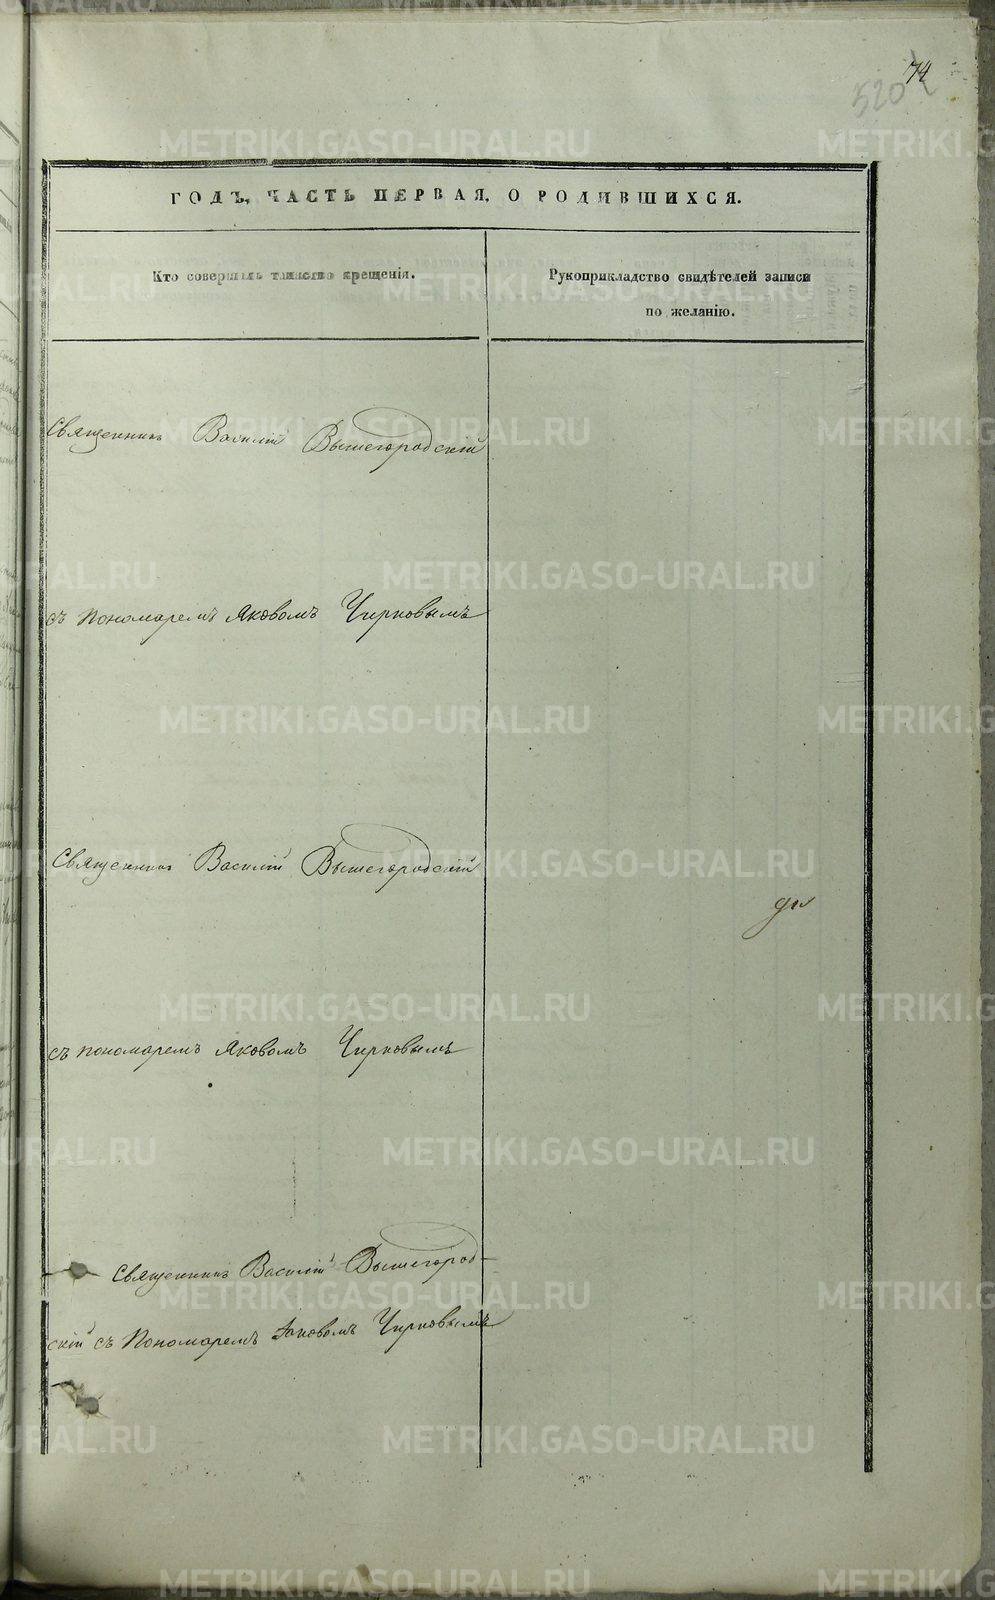 74
520
ГОДЪ, ЧАСТЬ ПЕРВАЯ, О РОДИВШИХСЯ.
Кто совершалъ таинство крещенія.
Рукоприкладство свидѣтелей записи
по желанію.
Священникъ Василій Вышегородскій
съ пономаремъ Яковомъ Чирковымъ
Священникъ Василій Вышегородскій
съ пономаремъ Яковомъ Чирковымъ
Священникъ Василій Вышегород-
скій съ Пономаремъ Іаковомъ Чирковымъ
METRIKI.GASO-URAL.RU